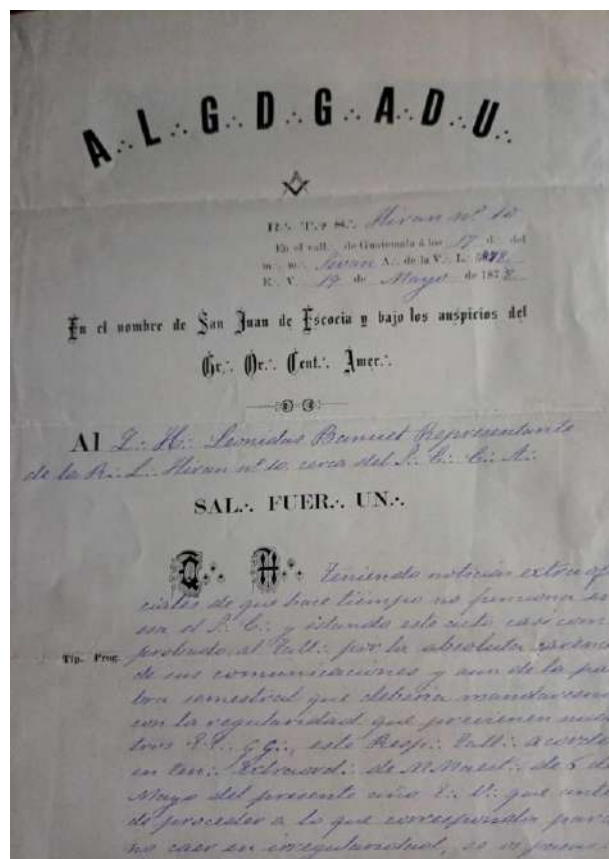 A∴ L∴ G∴ D∴ G∴ A∴ D∴ U∴
R∴ T∴ Hiran nº 10
En el vall∴ de Guatemala á los 17 d∴ del
m∴ m∴ Sivan A∴ de la V∴ L∴
E∴ V∴ 19 de Mayo de 1878
En el nombre de San Juan de Escocia y bajo los auspicios del
Gr∴ Or∴ Cent∴ Amer∴
Al I∴ H∴ Leonidas Representante
de la R∴ L∴ Hiran nº 10 cerca del S∴ C∴ C∴ A∴
SAL∴ FUER∴ UN∴
Q∴ H∴ Teniendo noticias
de que hace tiempo no funciona
ese S∴ C∴ y estando este casi com
probado al Tall∴ por la absoluta carenci
Tip. Prog.
de sus comunicaciones y aun de la pala
bra semestral que deberia
con la regularidad que previenen nues
tros GG∴, este Resp∴ Tall∴ acordó
en Ten∴ Extraord∴ de de 5 de
Mayo del presente año E∴ V∴ que ante
de proceder a lo que corresponda para
no caer en irregularidad, se